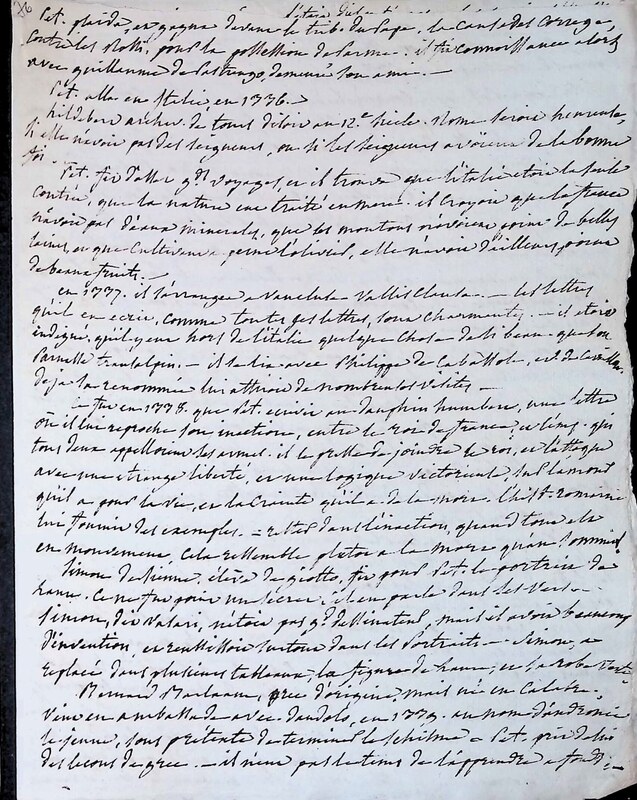 36
Pet. plaida, et gagna devant le trib. du Pape, la cause des Correge,
contre les Rossi, pour la possession de Parme. il fit connoissance alors
avec guillaume de Pastrengo, demeuré son ami. —
Pet. alla en Italie, en 1336. —
hildebert archev. de tours disoit au 12.e siecle. Rome seroit heureuse,
si elle n'avoit pas des seigneurs, ou si les seigneurs avoient de la bonne
foi.
Pet. fit d'assez gds voyages, et il trouva que l'italie etoit la seule
contrée, que la nature eut traité en mere. il croyoit que la france
n'avoit pas d'eaux minerales, que les moutons n'avoient point de belles
laines, et que cultivant à peine l'olivier, elle n'avoit d'ailleurs, point
de beaux fruits. —
en 1337. il s'arrangea a Vaucluse Vallis Clausa. — les lettres
qu'il en ecrit, comme toutes ses lettres, sont charmantes. — il etoit
indigné, qu'il y eut hors de l'italie quelque chose de si beau que son
Parnasse transalpin. — il se lia avec Philippe de Cabassol, ev. de Cavaillon.
deja la renommée lui attiroit de nombreuses visites. —
Ce fut en 1338. que Pet. ecrivit au dauphin humbert, une lettre
où il lui reproche son inaction, entre le roi de france, et l'emp. qui
tous deux appelloient ses armes. il le presse de joindre le roi, et l'attaque
avec une etrange liberté, et une logique victorieuse sur l'amour
qu'il a pour la vie, et la crainte qu'il a de la mort. L'hist. romaine
lui fournit des exemples. — rester dans l'inaction, quand tout est
en mouvement, cela ressemble plutot a la mort qu'au sommeil.
Simon de Sienne, éleve de giotto, fit pour Pet. le portrait de
Laure. Ce ne fut point un secret. il en parle dans ses vers. —
Simon, dit Vasari, n'étoit pas gd dessinateur, mais il avoit beaucoup
d'invention, et reussissoit surtout dans les Portraits. — Simon, a
replacé dans plusieurs tableaux, la figure de Laure, et sa robe verte
Bernard Barlaam, grec d'origine, mais né en Calabre,
vint en ambassade avec Dandolo, en 1339. au nom d'andronic
le jeune, sous prétexte de terminer le schisme. — Pet. prit de lui
des lecons de grec. — il n'eut pas le tems de l'apprendre a fond. —